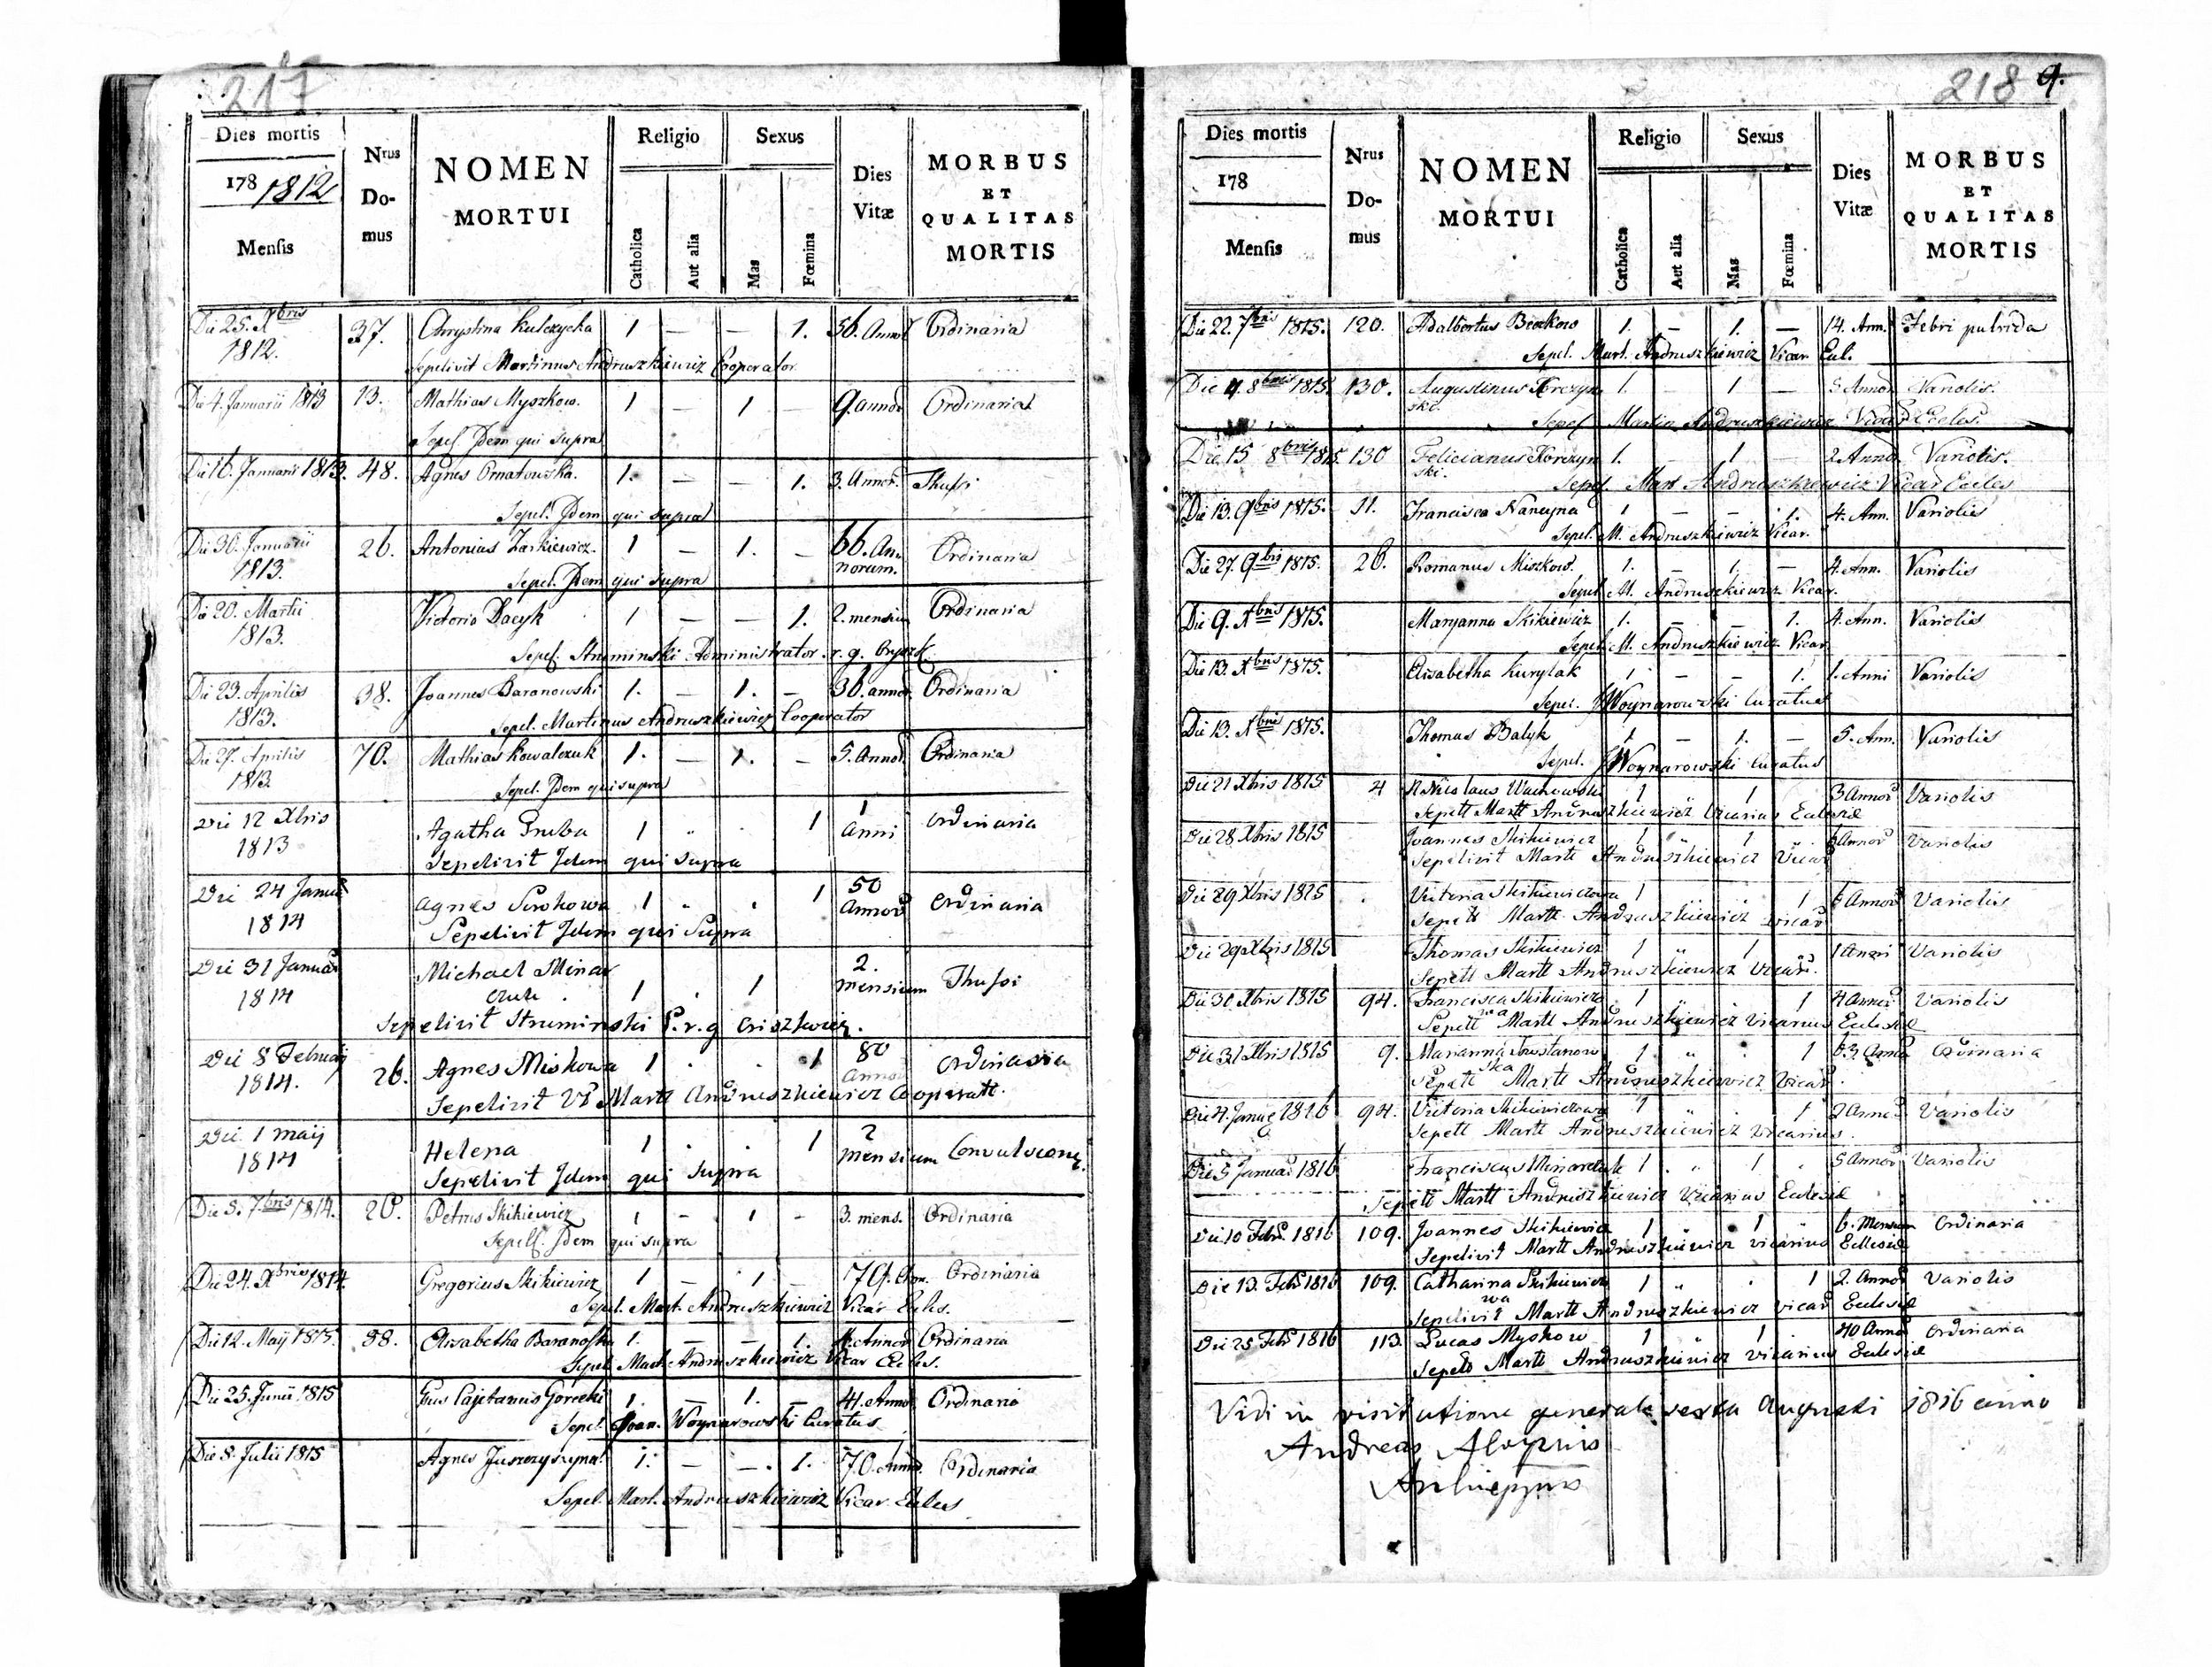 217
Dies mortis Nrus Domus NOMEN MORTUI Religio Sexus Dies Vitæ MORBUS ET QUALITAS MORTIS
178 1812
Mensis Catholica Aut alia Mas Fœmina
Die 25. Xbris 1812. 37. Chrystina Kulczycka 1 — — 1. 56. Annor Ordinaria
Sepelivit Martinus Andruszkiewicz Cooperator.
Die 4. Januarii 1813 13. Mathias Myszkow. 1 — 1 — 9. annor Ordinaria
Sepel. Idem qui supra
Die 16. Januarii 1813. 48. Agnes Ornatowska. 1. — — 1. 3. Annor. Thussi
Sepel. Idem qui supra
Die 30. Januarii 1813. 26. Antonius Zarkiewicz. 1 — 1. — 66. Annorum. Ordinaria
Sepel. Idem qui supra
Die 20. Martii 1813. Victoria Dacyk 1 — — 1. 2. mensium Ordinaria
Sepel. Struminski Administrator r. g.
Die 23. Aprilis 1813. 38. Joannes Baranowski 1. — 1. — 36. annor Ordinaria
Sepel. Martinus Andruszkiewicz Cooperator
Die 27. Aprilis 1813. 70. Mathias Kowalczuk 1. — 1. — 5. Annor Ordinaria
Sepel. Idem qui supra
Die 12 Xbris 1813 Agatha Gruba 1 1 1 Anni ordinaria
Sepelivit Idem qui supra
Die 24 Januar 1814 Agnes Sirokowa 1 1 50 Annor ordinaria
Sepelivit Idem qui Supra
Die 31 Januar 1814 Michael Minarczuk. 1 . 1 2. mensium Thussi
Sepelivit Struminski P. r. g
Die 8 Februarij 1814. 26. Agnes Miskowa 1 . . 1 80 Annor ordinaria
Sepelivit Martt Andruszkiewicz Cooperatt.
Die 1 maij 1814 Helena 1 . . 1 2 mensium Convulsione.
Sepelivit Idem qui supra
Die 5. 7bris 1814. 26. Petrus Skikiewicz 1 — 1 — 3. mens. Ordinaria
Sepell. Idem qui supra
Die 24. Xbris 1814 Gregorius Skikiewicz 1 — 1 — Ordinaria
Sepel. Mart. Andruszkiewicz Vicar Eccles.
Die 12. Maij 1815. 38. Elisabetha Baranoska 1. — — 1. Annor Ordinaria
Sepel. Mart. Andruszkiewicz Vicar Eccles.
Die 25. Junii 1815 Cajetanus Gorecki 1. — 1. — 41. Annor Ordinaria
Sepel. Joan. Woynarowski Curatus
Die 8. Julii 1815 Agnes Juszczyszyna 1. — — 1. 70. Annor. Ordinaria
Sepel. Mart. Andruszkiewicz Vicar Eccles
218 9.
Dies mortis Nrus Domus NOMEN MORTUI Religio Sexus Dies Vitæ MORBUS ET QUALITAS MORTIS
178
Mensis Catholica Aut alia Mas Fœmina
Die 22. 7bris 1815. 120. Adalbertus 1. — 1. — 14. Ann. Febri putrida
Sepel. Mart. Andruszkiewicz Vicar Eccl.
Die 4. 8bris 1815. 130. Augustinus Korczynski. 1. — 1 — 5 Annor Variolis.
Sepel Martin Andruszkiewicz Vicar Eccles.
Die 15 8bris 1815. 130 Felicianus Korczynski. 1. — 1 — 2 Annor Variolis.
Sepel. Mart Andruszkiewicz Vicar Eccles
Die 13. 9bris 1815. 11. Francisca 1 — — 1. 4. Ann. Variolis
Sepel. M. Andruszkiewicz Vicar.
Die 27. 9bris 1815. 26. Romanus Miszkow. 1. — 1. — 4. Ann. Variolis
Sepel. M. Andruszkiewicz Vicar.
Die 9. Xbris 1815. Maryanna Skikiewicz 1. — — 1. 4. Ann. Variolis
Sepel. M. Andruszkiewicz Vicar
Die 13. Xbris 1815. Elisabetha Kurylak 1 — — 1. 1. Anni Variolis
Sepel. J Woynarowski Curatus
Die 13. Xbris 1815. Thomas Balyk 1. — 1. — 5. Ann. Variolis
Sepel. J Woynarowski Curatus
Die 21 Xbris 1815 4 1 1 3 Annor Variolis
Sepelt Martt Andruszkiewicz Vicarius Eccles
Die 28 Xbris 1815 Joannes Skikiewicz 1 " 1 Annor Variolis
Sepelivit Martt Andruszkiewicz Vicar
Die 29 Xbris 1815 Victoria Skikiewiczowa 1 1 6 Annor Variolis
Sepelt Martt Andruszkiewicz vicar
Die 29 Xbris 1815 Thomas Skikiewicz 1 " 1 1 Anni Variolis
Sepelt Martt Andruszkiewicz vicar.
Die 30 Xbris 1815 94. Francisca Skikiewiczowa 1 " . 1 4 Annor Variolis
Sepelt Martt Andruszkiewicz vicarius Eccles
Die 31 Xbris 1815 9. Marianna 1 " . 1 63 Annor Ordinaria
Sepelt Martt Andruszkiewicz Vicar.
Die 4. Januar 1816 94. Victoria Skikiewiczowa 1 " . 1 2 Annor Variolis
Sepelt Martt Andruszkiewicz vicarius.
Die 5 Januar 1816 Franciscus Minarczuk 1 . " 1 " 5 Annor Variolis
Sepelt Martt Andruszkiewicz Vicarius Eccles
Die 10 Febr. 1816 109. Joannes Skikiewicz 1 " 1 " 6. Mensium ordinaria
Sepelivit Martt Andruszkiewicz vicarius Eccles
Die 13. Febr 1816 109. Catharina Skikiewiczowa 1 " . 1 2. Annor Variolis
Sepelivit Martt Andruszkiewicz vicar Eccles
Die 25 Febr 1816 113. Lucas Myskow 1 " 1 . 40 Annor ordinaria
Sepelt Martt Andruszkiewicz vicarius Eccles
Vidi in visitatione generali sexta Augusti 1816 anno
Andreas Aloysius
Archieppus